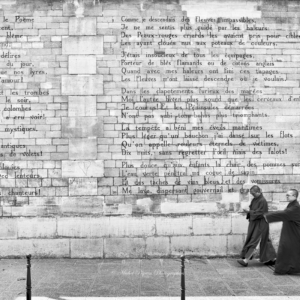 le Poème
blême
délires
que nos lyres
et les trombes
le soir
colombes
a cru voir!
mystiques,
Comme je descendais des Fleuves impassibles,
Je ne me sentis plus guidé par les haleurs:
Des Peaux-rouges criards les avaient pris pour cibles
Les ayant cloués nus aux poteaux de couleurs.
J'étais insoucieux de tous les équipages,
Porteur de blés flamands ou de cotons anglais.
Quand avec mes haleurs ont fini ces tapages
Les Fleuves m'ont laissé descendre où je voulais.
Dans les clapotements furieux des marées
Moi l'autre hiver plus sourd que les cerveaux d'enfants,
Je courus! Et les Péninsules démarrées
N'ont pas subi tohu-bohus plus triomphants.
La tempête a béni mes éveils maritimes.
Plus léger qu'un bouchon j'ai dansé sur les flots
Qu'on appelle rouleurs éternels de victimes,
Dix nuits, sans regretter l'œil niais des falots!
Plus douce qu'aux enfants la chair des pommes sures
L'eau verte pénétra ma coque de sapin
Et des taches de vins bleus et des vomissures
Me lava, dispersant gouvernail et